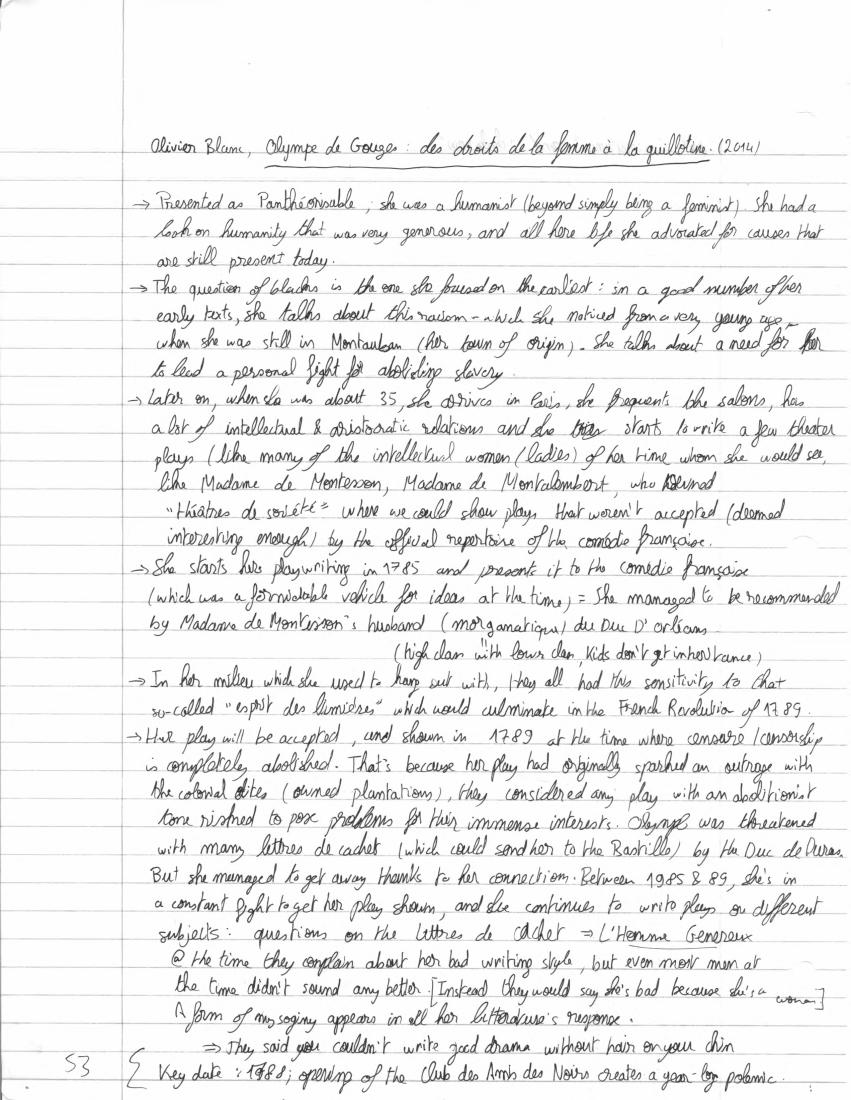 Olivier Blanc, Olympe de Gouges : des droits de la femme à la guillotine. (2014)
→ Presented as Panthéonisable, she was a humanist (beyond simply being a feminist). She had a
look on humanity that was very generous, and all here life she advocated for causes that
are still present today.
→ The question of blacks is the one she focused on the earliest : in a good number of her
early texts, she talks about this racism - which she noticed from a very young age -
when she was still in Montauban (her town of origin). She talks about a need for her
to lead a personal fight for abolishing slavery.
→ Later on, when she was about 35, she arrives in Paris, she frequents the salons, has
a lot of intellectual & aristocratic relations and she starts to write a few theater
plays (like many of the intellectual women (ladies) of her time whom she would see,
like Madame de Montesson, Madame de Montalembert, who owned
"théâtres de société" where we could show plays that weren't accepted (deemed
interesting enough) by the official repertoire of the comédie française.
→ She starts her playwriting in 1785 and presents it to the comédie française
(which was a formidable vehicle for ideas at the time) = She managed to be recommended
by Madame de Montesson's husband (morganatique) du Duc D'Orléans
(high class with lower class, kids don't get inheritance)
→ In her milieu which she used to hang out with, they all had this sensitivity to that
so-called "esprit des lumières" which would culminate in the French Revolution of 1789.
→ Her play will be accepted, and shown in 1789 at the time where censure / censorship
is completely abolished. That's because her play had originally sparked an outrage with
the colonial elites (owned plantations), they considered any play with an abolitionist
tone risked to pose problems for their immense interests. Olympe was threatened
with many lettres de cachet (which could send her to the Bastille) by the Duc de Duras.
But she managed to get away thanks to her connections. Between 1985 & 89, she's in
a constant fight to get her play shown, and she continues to write plays on different
subjects : questions on the lettres de cachet ⇒ L'Homme Genereux
@ the time they complain about her bad writing style, but even most men at
the time didn't sound any better. [Instead they would say she's bad because she's a woman]
A form of mysoginy appears in all her litterature's response.
⇒ They said you couldn't write good drama without hair on your chin
53 { Key date : 1788; opening of the Club des Amis des Noirs creates a year-long polemic.